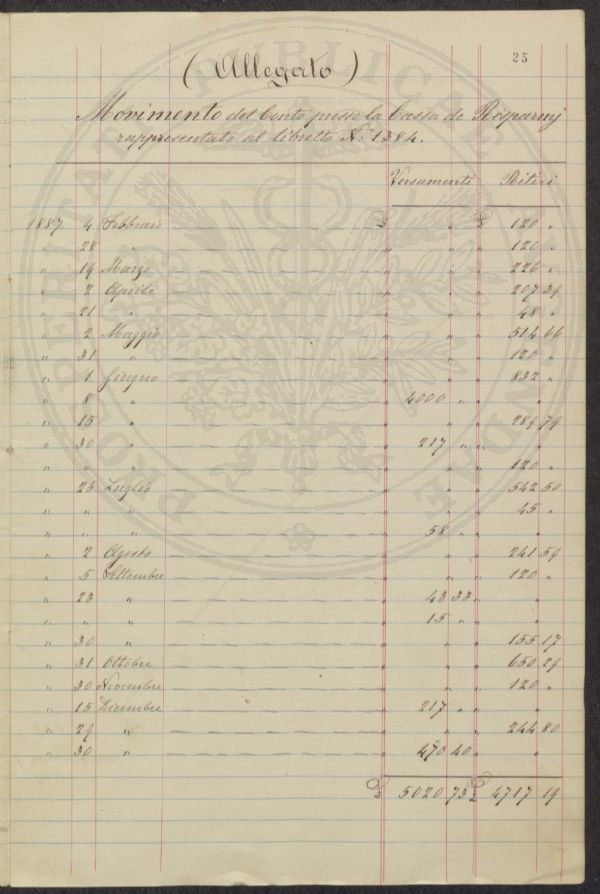 25
(Allegato)
Movimento del Conto presso la Cassa de Risparmj
rappresentato al libretto No. 1384.
Versamenti Ritiri
1887 4 Febbraio £ " £ 120 "
" 28 " " " " 120 "
" 19 Marzo " " " 226 "
" 2 Aprile " " " 207 39
" 21 " " " " 48 "
" 2 Maggio " " " 514 66
" 31 " " " " 120 "
" 1 Giugno " " " 832 "
" 8 " " 4000 " " "
" 15 " " " " 289 79
" 30 " " 217 " " "
" " " " " " 120 "
" 25 Luglio " " " 542 50
" " " " " " 45 "
" " " " 58 " " "
" 2 Agosto " " " 241 59
" 5 Settembre " " " 120 "
" 23 " " 43 33 " "
" " " " 15 " " "
" 30 " " " " 155 17
" 31 Ottobre " " " 650 29
" 30 Novembre " " " 120 "
" 15 Dicembre " 217 " " "
" 29 " " " " 244 80
" 30 " " 470 40 " "
£ 5020 73 £ 4717 19
PROSPERITATI PUBLICAE AUGENDAE